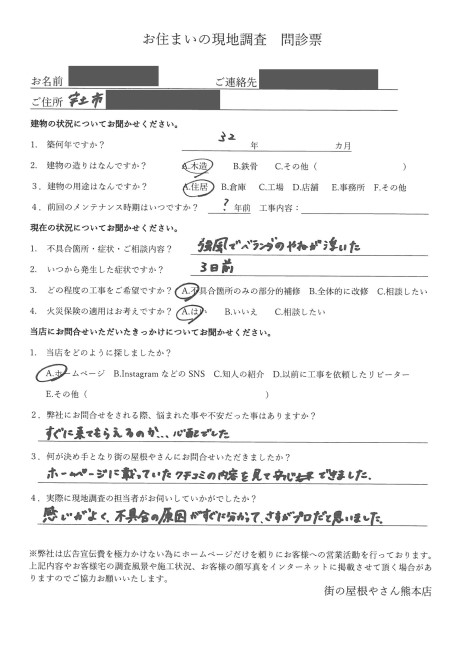 お住まいの現地調査　問診票
お名前　ご連絡先
ご住所 宇土市
建物の状況についてお聞かせください。
1.　築何年ですか？　32 年　カ月
2.　建物の造りはなんですか？　A.木造　B.鉄骨　C.その他（　）
3．建物の用途はなんですか？　A.住居　B.倉庫　C.工場　D.店舗　E.事務所　F.その他
4．前回のメンテナンス時期はいつですか？　？ 年前　工事内容：
現在の状況についてお聞かせください。
1.　不具合箇所・症状・ご相談内容？　強風でベランダのやねが浮いた
2.　いつから発生した症状ですか？　3日前
3.　どの程度の工事をご希望ですか？　A.不具合箇所のみの部分的補修　B.全体的に改修　C.相談したい
4.　火災保険の適用はお考えですか？　A.はい　B.いいえ　C.相談したい
当店にお問合せいただいたきっかけについてお聞かせください。
1.　当店をどのように探しましたか？
A.ホームページ　B.Instagram などの SNS　C.知人の紹介　D.以前に工事を依頼したリピーター
E.その他（　）
2．弊社にお問合せをされる際、悩まれた事や不安だった事はありますか？
すぐに来てもらえるのか…、心配でした
3．何が決め手となり街の屋根やさんにお問合せいただきましたか？
ホームページに載っていたクチコミの内容を見て安心できました。
4．実際に現地調査の担当者がお伺いしていかがでしたか？
感じがよく、不具合の原因がすぐに分かって、さすがプロだと思いました。
※弊社は広告宣伝費を極力かけない為にホームページだけを頼りにお客様への営業活動を行っております。
上記内容やお客様宅の調査風景や施工状況、お客様の顔写真をインターネットに掲載させて頂く場合があ
りますのでご協力お願いいたします。
街の屋根やさん熊本店